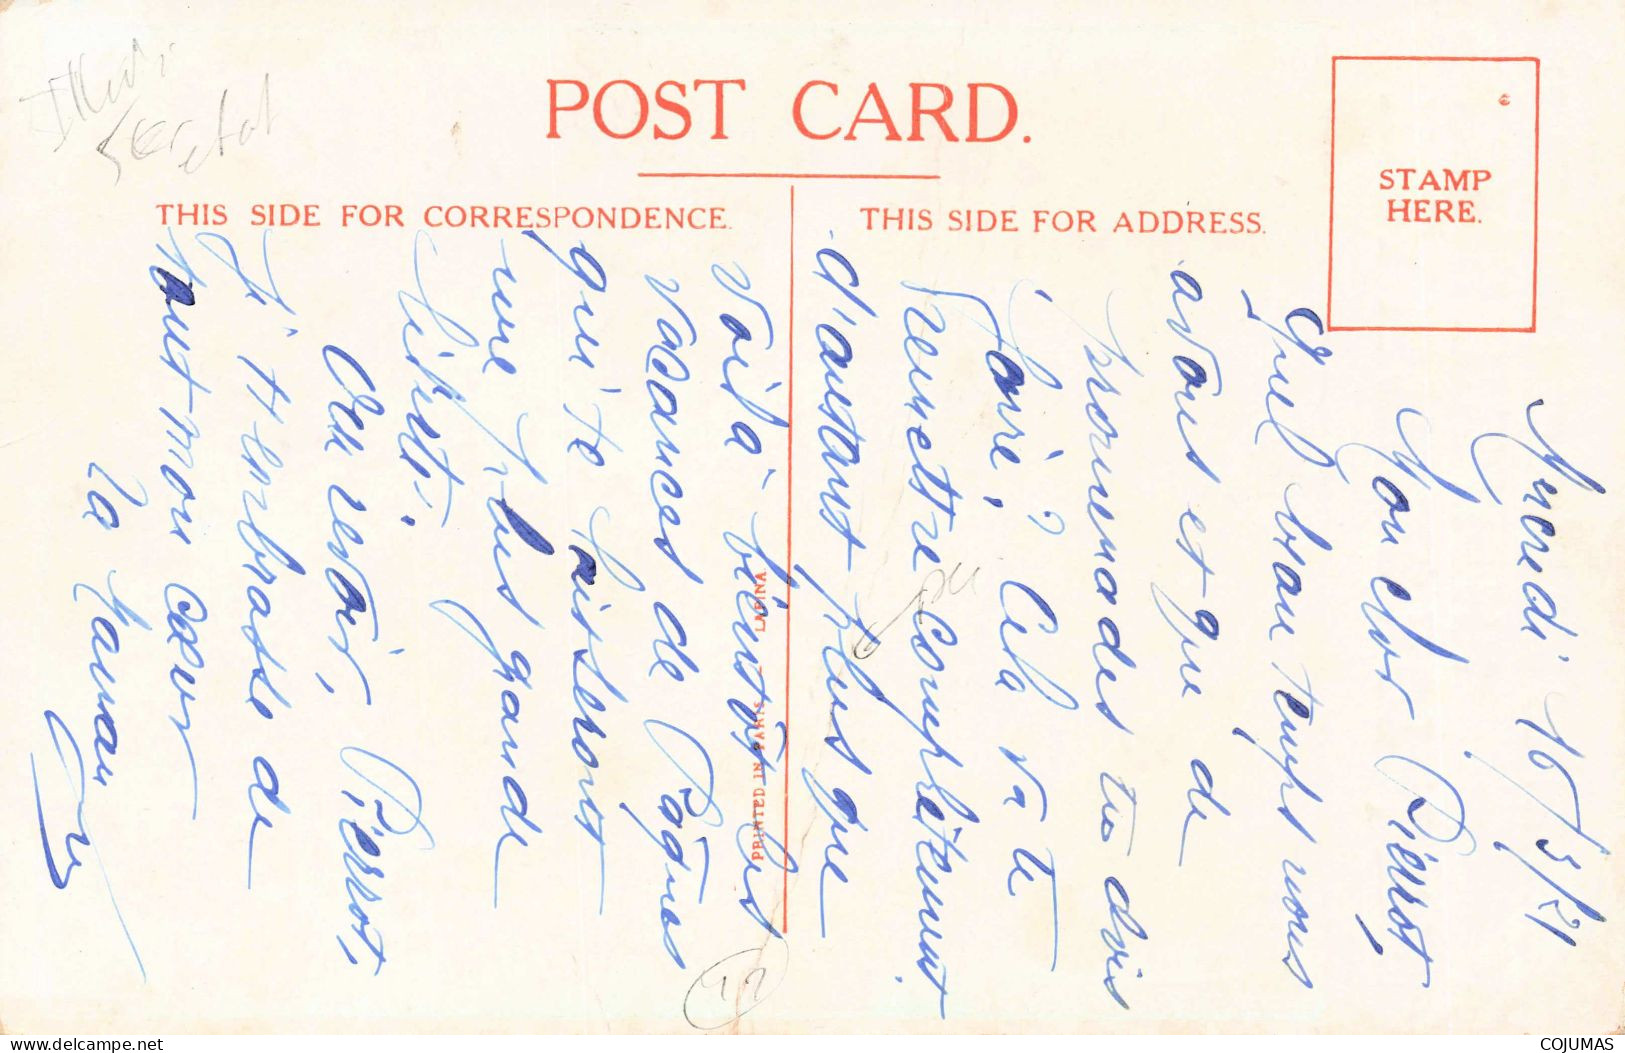 POST CARD.
THIS SIDE FOR CORRESPONDENCE.
THIS SIDE FOR ADDRESS.
STAMP
HERE.
PRINTED IN PARIS - LAPINA
Mercredi 16/3/21
Mon cher Pierrot,
Quel beau temps nous
avons et que de
promenades tu dois
faire ! Cela va te
remettre complètement
d'autant plus que
voilà bientôt les
vacances de Pâques
qui te laisseront
une plus grande
liberté.
Au revoir, Pierrot,
je t'embrasse de
tout mon cœur
Ta Maman
www.delcampe.net
COJUMAS